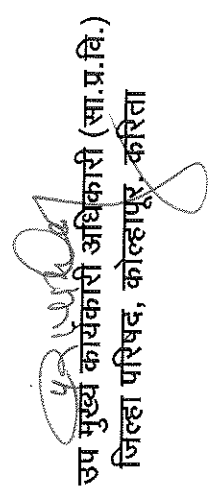 उप मुख्य कार्यकारी अधिकारी (सा.प्र.वि.)
जिल्हा परिषद, कोल्हापूर करिता